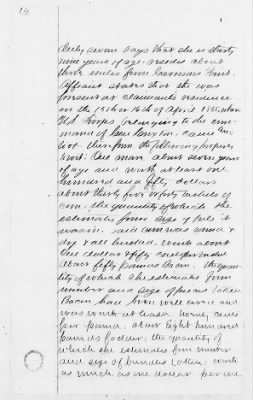 duly sworn says that she is thirty
nine years of age, resides about
three miles from
Affiant states that she was
present at claimants residence
on the 15 or 16th of April 1865, when
U.S. Troops belonging to the com
mand of Gen came and
took then from the following property
to wit: One mare about seven years
of age and worth at least one
hundred and fifty dollars
about thirty five or forty bushels of
corn, the quantity of which she
estimates from size of pile it
was in. said corn was sound &
dry & all husked, worth about
one dollar & fifty cents per bushel
about fifty pounds Bacon, the quan
tity of which she estimates from
number and size of pieces taken
Bacon had been well cured and
was worth at least twenty cents
per pound, about eight hundred
pounds fodder, the quantity of
which she estimates from number
and size of bundles taken, worth
as much as one dollar per